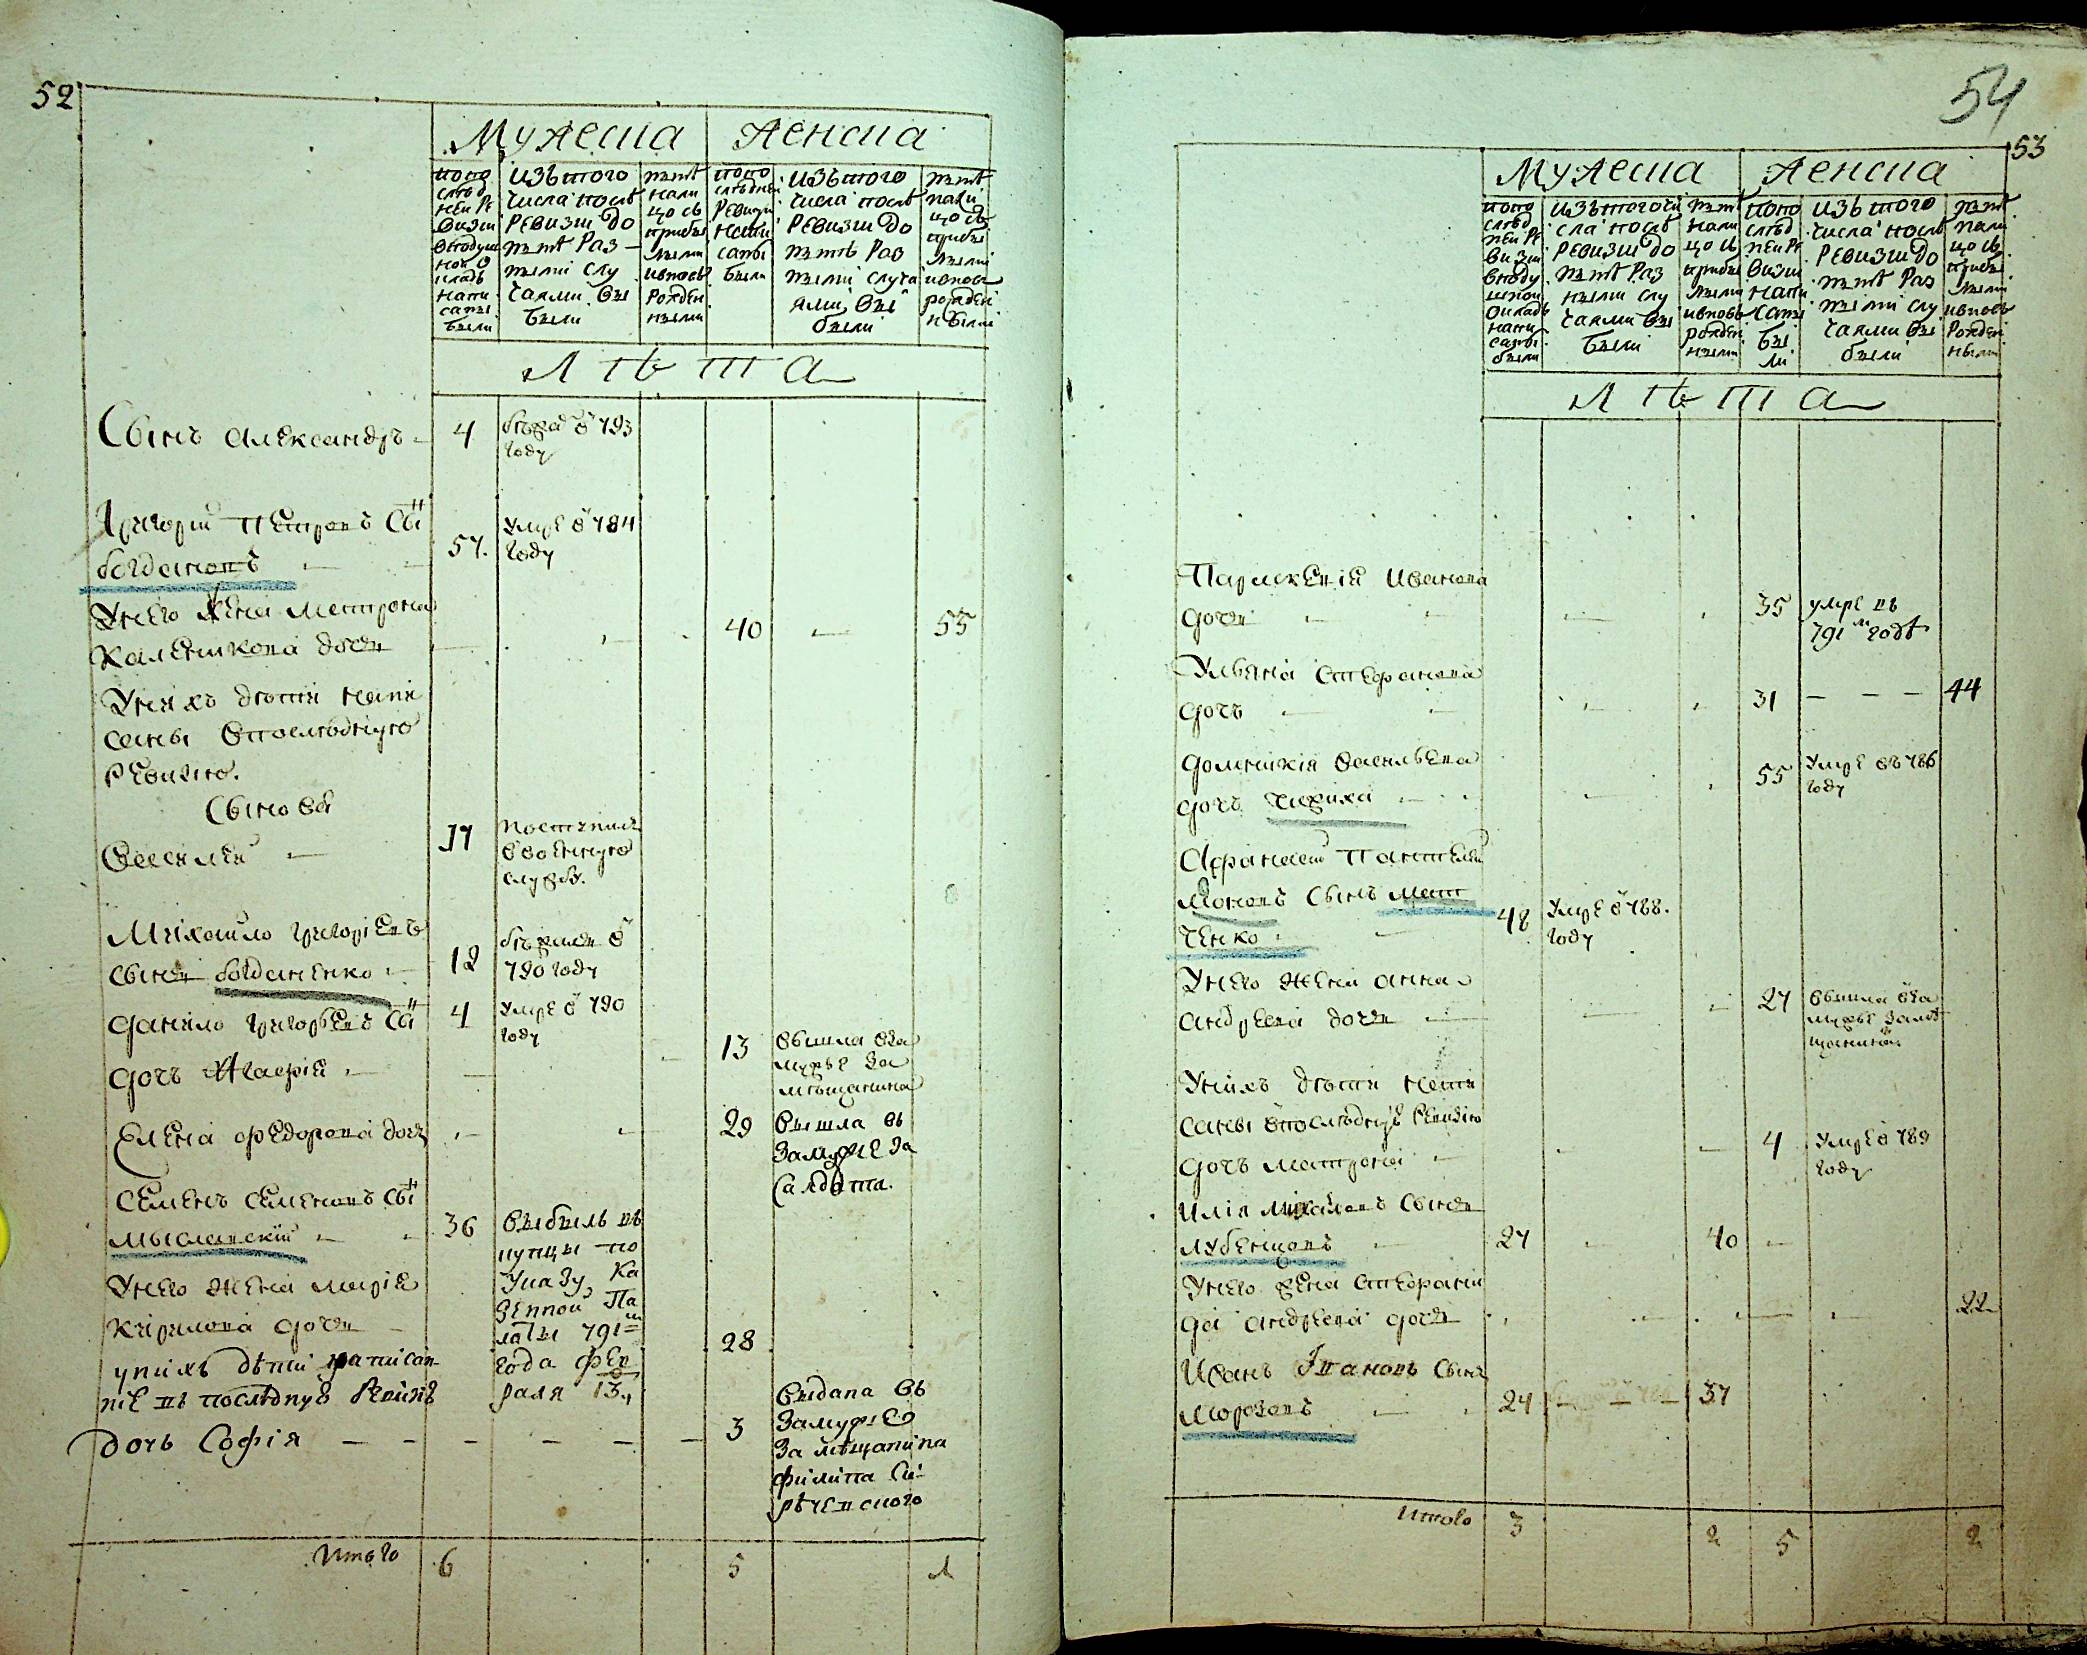 52
Мужеска Женска
По последней ревизии в подушной оклад написаны были
Изъ того числа после ревизии до ныне разными случаями выбыли
Ныне на лицо съ прибылыми и вновь рожденными
По последней ревизии написаны были
Изъ того числа после ревизии до ныне разными случаями выбыли
Ныне на лицо съ прибылыми и вновь рожденными
Лѣта
Сынъ Александръ 4 бѣжа в 793
году
Григорий Петровъ Сын
богдановъ 57. Умре в 784
году
У него жена Матрона
дочь 40 55
У них дѣти напи
саны в последнюю
ревизию.
Сыновья
Василей 17 поступил
в военную
службу.
Михайло григориевъ
сынъ богданенко 12 бѣжал в
790 году
Данило григорьевъ Сын 4 Умре в 790
году
дочь Агафия 13 вышла в за
мужье за
мѣщанина
Елена федорова дочь 29 вышла въ
замужие за
салдата.
Семенъ Семеновъ Сын
мысловский 36 выбыль въ
купцы по
указу Ка
зенной Па
латы 791
года фев
раля 13.
У него жена мария
Кирилова дочь 28
у них дѣти написан
ніе въ послѣднуѣ ревизиѣ
дочь Софія 3 выдана въ
замужие
за мѣщанина
филипа
Итого 6 5 1
54
53
Мужеска Женска
По последней ревизии в подушной окладъ написаны были
Изъ того числа после ревизии до ныне разными случаями выбыли
Ныне на лицо съ прибылыми и вновь рожденными
По последней ревизии написаны были
Изъ того числа после ревизии до ныне разными случаями выбыли
Ныне на лицо съ прибылыми и вновь рожденными
Лѣта
Парасковия Иванова
дочь 35 умре въ
791 м годѣ
Ульяна Стефанова
дочь 31 44
Домникия Васильева
дочь 55 Умре въ 786
году
Афанасий Пантелей
моновъ Сынъ Мат
ченко 48 Умре в 788.
году
У него жена анна
андреева дочь 27 вышла в за
мужье за мѣ
щанина
У них дѣти напи
саны в последнуѣ ревизию
дочь матрона 4 Умре в 789
году
Илія Михайловъ Сынъ
лубенцовъ 27 40
У него жена Стефани
да андреева дочь 22
Иванъ Івановъ Сынъ
Морозовъ 24 37
Итого 3 2 5 2